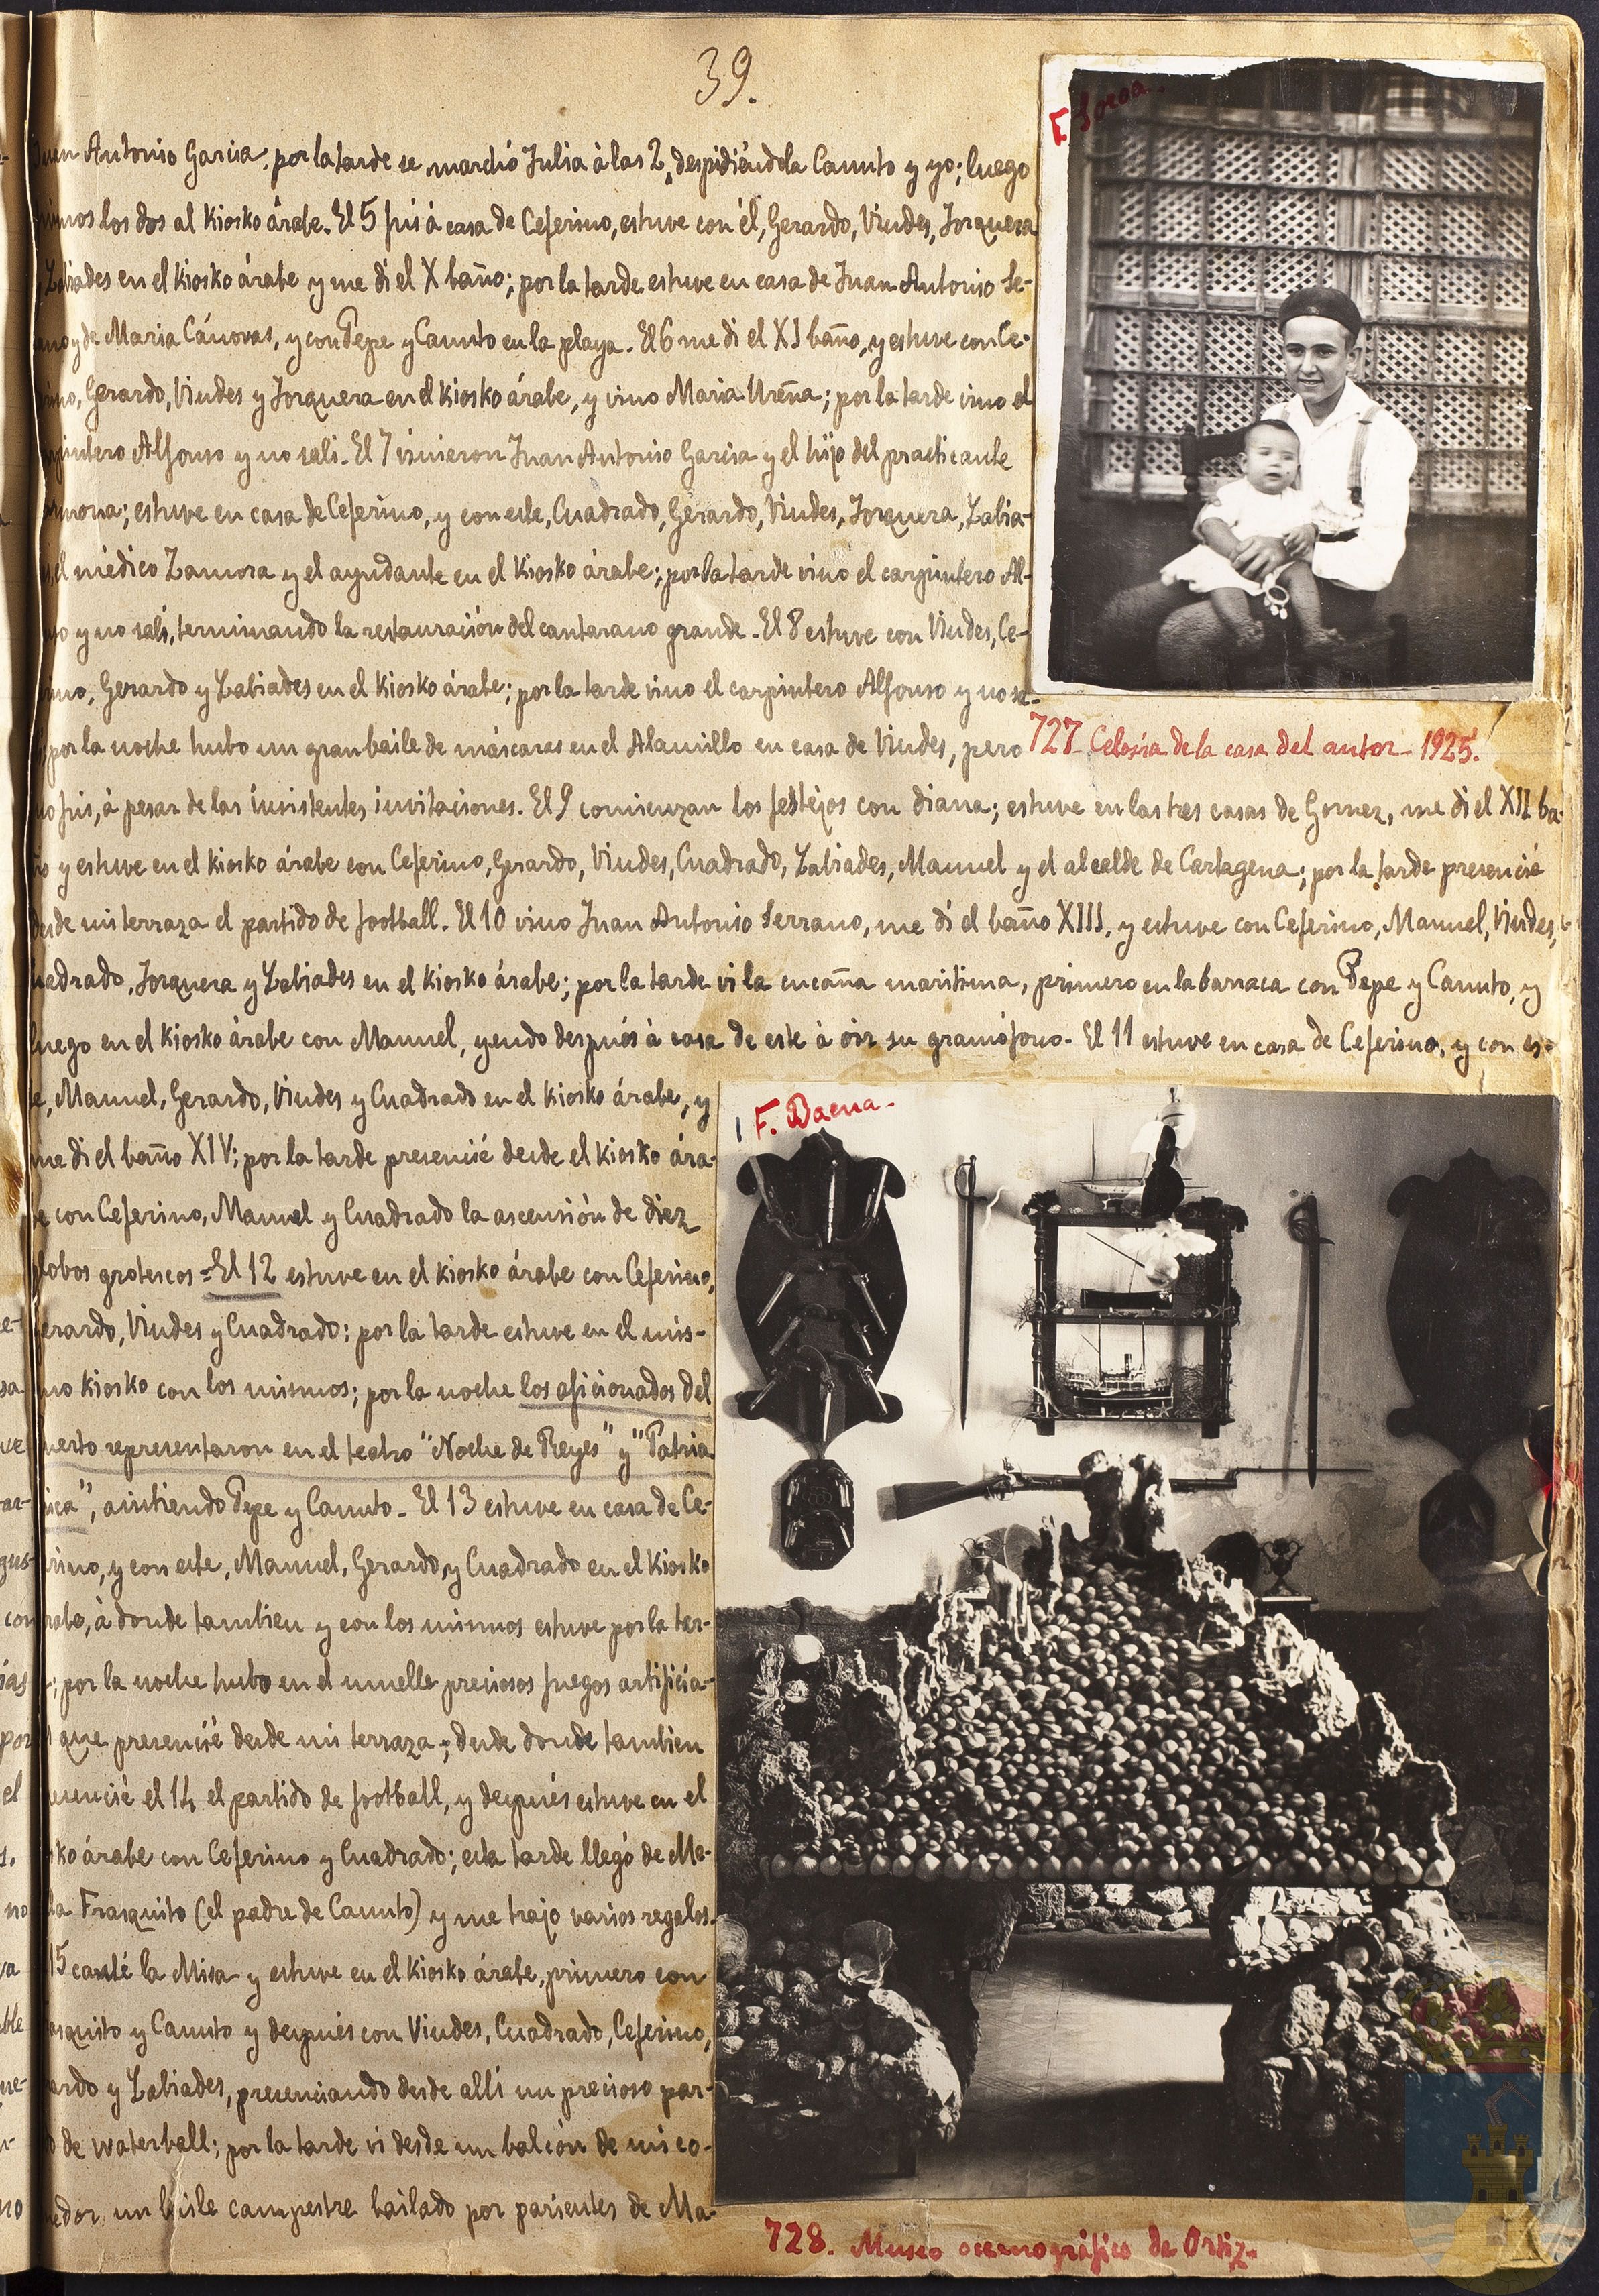 39.
F. Soroa.
Juan Antonio Garcia; por la tarde se marchó Julia à las 2, despidiéndola Canuto y yo; luego
nimos los dos al Kiosko árabe. El 5 fuí á casa de Ceferino, estuve con él, Gerardo, Viudes, Jorquera
Zabiades en el Kiosko árabe y me di el X baño; por la tarde estuve en casa de Juan Antonio Se-
ano y de Maria Cánovas, y con Pepe y Canuto en la playa. El 6 me di el XI baño, y estuve con Ce-
rino, Gerardo, Viudes y Jorquera en el Kiosko árabe, y vino Maria Ureña; por la tarde vino el
rpintero Alfonso y no sali. El 7 vinieron Juan Antonio Garcia y el hijo del practicante
mona; estuve en casa de Ceferino, y con este, Cuadrado, Gerardo, Viudes, Jorquera, Zabia-
el médico Zamora y el ayudante en el Kiosko árabe; por la tarde vino el carpintero Al-
so y no salí, terminando la restauración del cantarano grande. El 8 estuve con Viudes, Ce-
rino, Gerardo y Zabiades en el Kiosko árabe; por la tarde vino el carpintero Alfonso y no sa-
por la noche hubo un gran baile de máscaras en el Alamillo en casa de Viudes, pero
727. Celosía de la casa del autor - 1925.
no fuí, à pesar de las insistentes invitaciones. El 9 comienzan los festejos con diana; estuve en las tres casas de Gomez, me di el XII ba-
ño y estuve en el Kiosko árabe con Ceferino, Gerardo, Viudes, Cuadrado, Zabiades, Manuel y el alcalde de Cartagena; por la tarde presencié
desde mi terraza el partido de football. El 10 vino Juan Antonio Serrano, me dí el baño XIII, y estuve con Ceferino, Manuel, Viudes,
uadrado, Jorquera y Zabiades en el Kiosko árabe; por la tarde vi la cucaña maritima, primero en la barraca con Pepe y Canuto, y
luego en el Kiosko árabe con Manuel, yendo después à casa de este à oir su gramófono. El 11 estuve en casa de Ceferino, y con es-
te, Manuel, Gerardo, Viudes y Cuadrado en el Kiosko árabe, y
me di el baño XIV; por la tarde presencié desde el Kiosko ára-
e con Ceferino, Manuel y Cuadrado la ascensión de diez
lobos grotescos = El 12 estuve en el Kiosko árabe con Ceferino,
erardo, Viudes y Cuadrado; por la tarde estuve en el mis-
mo Kiosko con los mismos; por la noche los aficionados del
uerto representaron en el teatro "Noche de Reyes" y "Patria
ica", asistiendo Pepe y Canuto. El 13 estuve en casa de Ce-
rino, y con este, Manuel, Gerardo y Cuadrado en el Kiosko
rabe, à donde tambien y con los mismos estuve por la tar-
; por la noche hubo en el muelle preciosos fuegos artificia-
que presencié desde mi terraza; desde donde tambien
esencié el 14 el partido de football, y después estuve en el
ko árabe con Ceferino y Cuadrado; esta tarde llegó de Me-
la Frasquito (el padre de Canuto) y me trajo varios regalos.
15 canté la Misa y estuve en el Kiosko árabe, primero con
asquito y Canuto y después con Viudes, Cuadrado, Ceferino,
ardo y Zabiades, presenciando desde allí un precioso par-
o de waterball; por la tarde vi desde un balcón de mi co-
edor un baile campestre bailado por parientes de Ma-
F. Baena.
728. Museo oceanográfico de Ortiz.